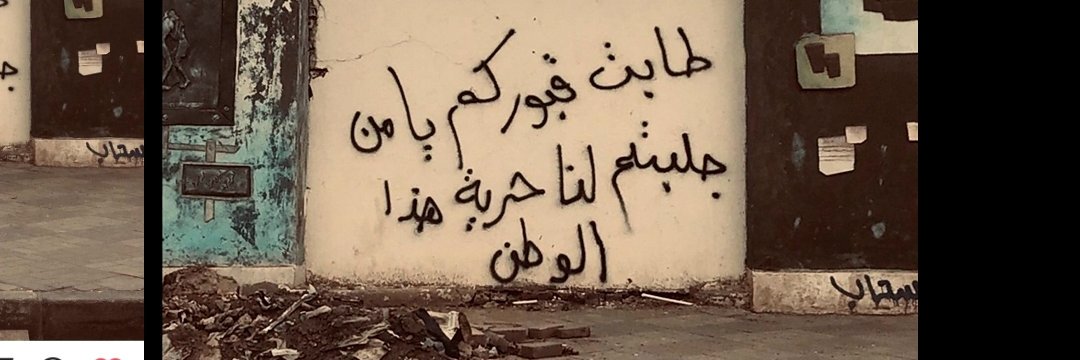 طابت قبوركم يا من
جلبتم لنا حرية هذا
الوطن